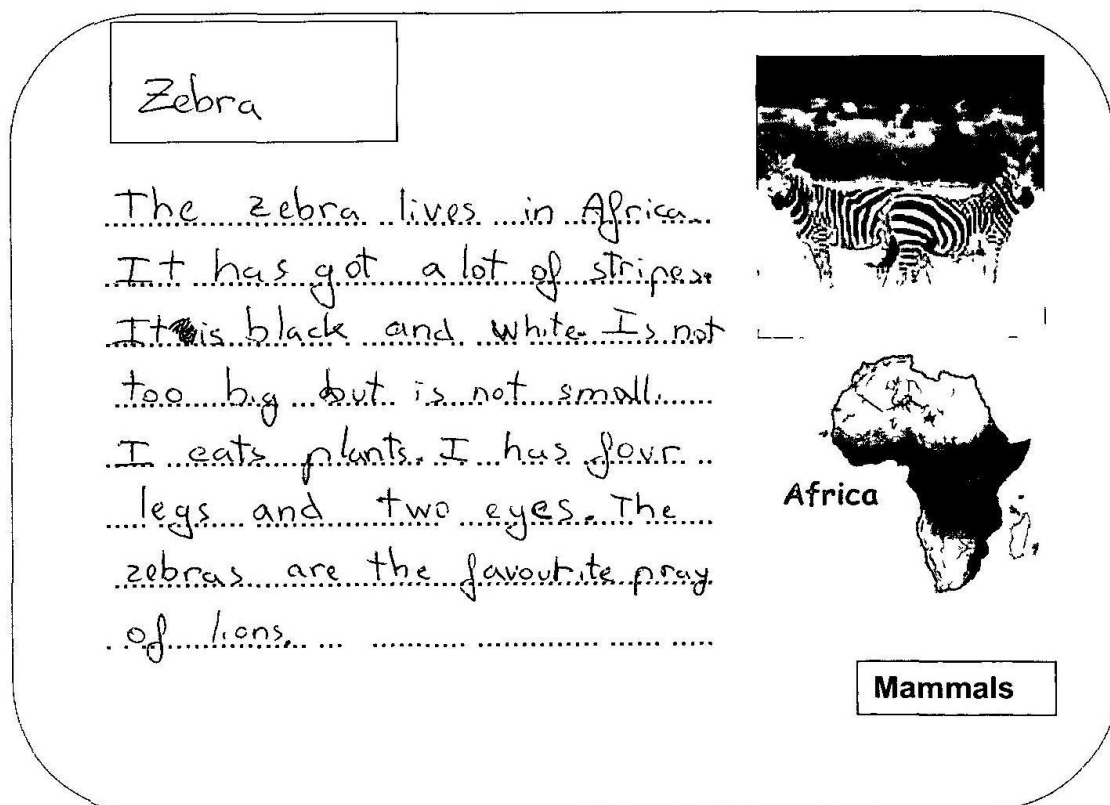 Zebra
The zebra lives in Africa.
It has got a lot of stripes.
It is black and white. Is not
too big but is not small.
I eats plants. I has four
legs and two eyes. The
zebras are the favourite pray
of lions.
Africa
Mammals